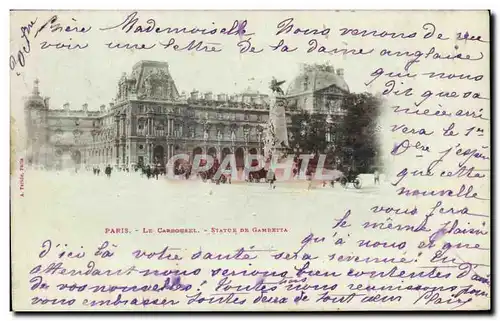 Chère Mademoiselle Nous venons de rece
voir une lettre de la dame anglaise
qui nous
dit que sa
mère arri
vera le 1er
Xbre j'espère
que cette
nouvelle
vous fera
le même plaisir
qu'à nous et que
d'ici là votre santé sera revenue. En
attendant nous serions bien contentes d'avoir
de vos nouvelles. Toutes nous nous réunissons pour
vous embrasser toutes deux de tout cœur
PARIS. - LE CARROUSEL. - STATUE DE GAMBETTA
CPARAMA